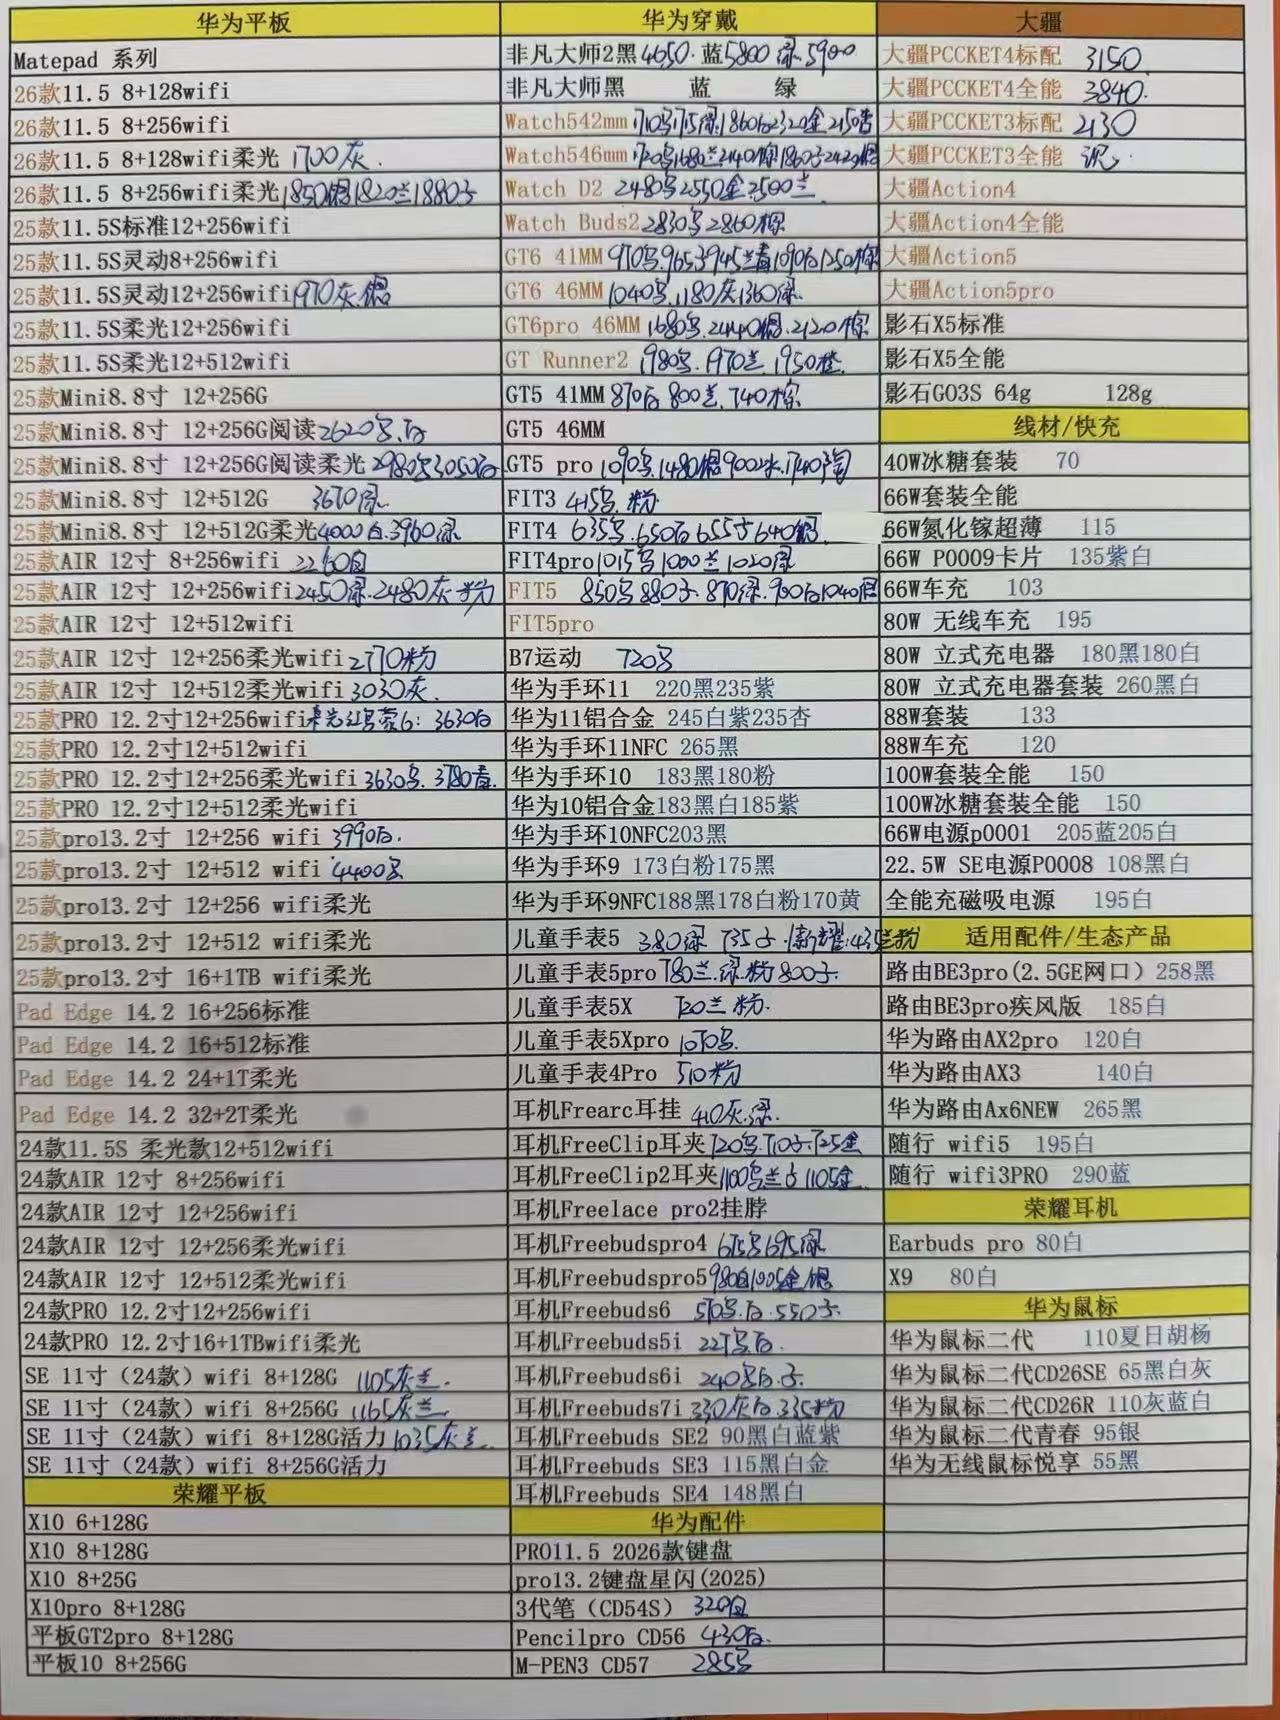 华为平板
Matepad 系列
26款11.5 8+128wifi
26款11.5 8+256wifi
26款11.5 8+128wifi柔光 1700灰.
26款11.5 8+256wifi柔光
25款11.5S标准12+256wifi
25款11.5S灵动8+256wifi
25款11.5S灵动12+256wifi 1970灰银
25款11.5S柔光12+256wifi
25款11.5S柔光12+512wifi
25款Mini8.8寸 12+256G
25款Mini8.8寸 12+256G阅读 2620
25款Mini8.8寸 12+256G阅读柔光
25款Mini8.8寸 12+512G 3670绿
25款Mini8.8寸 12+512G柔光4000白.3960绿
25款AIR 12寸 8+256wifi 2260白
25款AIR 12寸 12+256wifi2450绿.2480灰粉
25款AIR 12寸 12+512wifi
25款AIR 12寸 12+256柔光wifi 2770粉
25款AIR 12寸 12+512柔光wifi 3030灰.
25款PRO 12.2寸12+256wifi 3630白
25款PRO 12.2寸12+512wifi
25款PRO 12.2寸12+256柔光wifi 3630 3780
25款PRO 12.2寸12+512柔光wifi
25款pro13.2寸 12+256 wifi 3990白.
25款pro13.2寸 12+512 wifi 4400
25款pro13.2寸 12+256 wifi柔光
25款pro13.2寸 12+512 wifi柔光
25款pro13.2寸 16+1TB wifi柔光
Pad Edge 14.2 16+256标准
Pad Edge 14.2 16+512标准
Pad Edge 14.2 24+1T柔光
Pad Edge 14.2 32+2T柔光
24款11.5S 柔光款12+512wifi
24款AIR 12寸 8+256wifi
24款AIR 12寸 12+256wifi
24款AIR 12寸 12+256柔光wifi
24款AIR 12寸 12+512柔光wifi
24款PRO 12.2寸12+256wifi
24款PRO 12.2寸16+1TBwifi柔光
SE 11寸（24款）wifi 8+128G 1105灰兰.
SE 11寸（24款）wifi 8+256G 1165灰兰.
SE 11寸（24款）wifi 8+128G活力 1035灰兰.
SE 11寸（24款）wifi 8+256G活力
荣耀平板
X10 6+128G
X10 8+128G
X10 8+25G
X10pro 8+128G
平板GT2pro 8+128G
平板10 8+256G
华为穿戴
非凡大师2黑4650.蓝5800 绿5900
非凡大师黑 蓝 绿
Watch542mm
Watch546mm
Watch D2 2480 2550金.2500兰.
Watch Buds2 2830 2860棕
GT6 41MM
GT6 46MM 1040 1180灰1360绿
GT6pro 46MM 1680 2440银.2120棕
GT Runner2 1980 1970兰.1950橙.
GT5 41MM 870白800兰.740棕
GT5 46MM
GT5 pro
FIT3 415 粉
FIT4 635 650白655 640银
FIT4pro 1015 1000兰1020绿
FIT5
FIT5pro
B7运动 720
华为手环11 220黑235紫
华为11铝合金 245白紫235杏
华为手环11NFC 265黑
华为手环10 183黑180粉
华为10铝合金183黑白185紫
华为手环10NFC203黑
华为手环9 173白粉175黑
华为手环9NFC188黑178白粉170黄
儿童手表5 380绿
儿童手表5pro 780兰.绿.粉800
儿童手表5X 720兰粉.
儿童手表5Xpro 1070
儿童手表4Pro 510粉
耳机Frearc耳挂 410灰.绿.
耳机FreeClip耳夹 720 710 725金
耳机FreeClip2耳夹 1100 1105金
耳机Freelace pro2挂脖
耳机Freebudspro4 675 695绿
耳机Freebudspro5 980白1005金银
耳机Freebuds6 570 白.550
耳机Freebuds5i 227 白.
耳机Freebuds6i 240 白
耳机Freebuds7i 330灰白.335粉
耳机Freebuds SE2 90黑白蓝紫
耳机Freebuds SE3 115黑白金
耳机Freebuds SE4 148黑白
华为配件
PRO11.5 2026款键盘
pro13.2键盘星闪(2025)
3代笔（CD54S） 320白
Pencilpro CD56 430白.
M-PEN3 CD57 285
大疆
大疆PCCKET4标配 3150
大疆PCCKET4全能 3840.
大疆PCCKET3标配 2130
大疆PCCKET3全能
大疆Action4
大疆Action4全能
大疆Action5
大疆Action5pro
影石X5标准
影石X5全能
影石GO3S 64g 128g
线材/快充
40W冰糖套装 70
66W套装全能
66W氮化镓超薄 115
66W P0009卡片 135紫白
66W车充 103
80W 无线车充 195
80W 立式充电器 180黑180白
80W 立式充电器套装 260黑白
88W套装 133
88W车充 120
100W套装全能 150
100W冰糖套装全能 150
66W电源p0001 205蓝205白
22.5W SE电源P0008 108黑白
全能充磁吸电源 195白
适用配件/生态产品
路由BE3pro(2.5GE网口）258黑
路由BE3pro疾风版 185白
华为路由AX2pro 120白
华为路由AX3 140白
华为路由Ax6NEW 265黑
随行 wifi5 195白
随行 wifi3PRO 290蓝
荣耀耳机
Earbuds pro 80白
X9 80白
华为鼠标
华为鼠标二代 110夏日胡杨
华为鼠标二代CD26SE 65黑白灰
华为鼠标二代CD26R 110灰蓝白
华为鼠标二代青春 95银
华为无线鼠标悦享 55黑